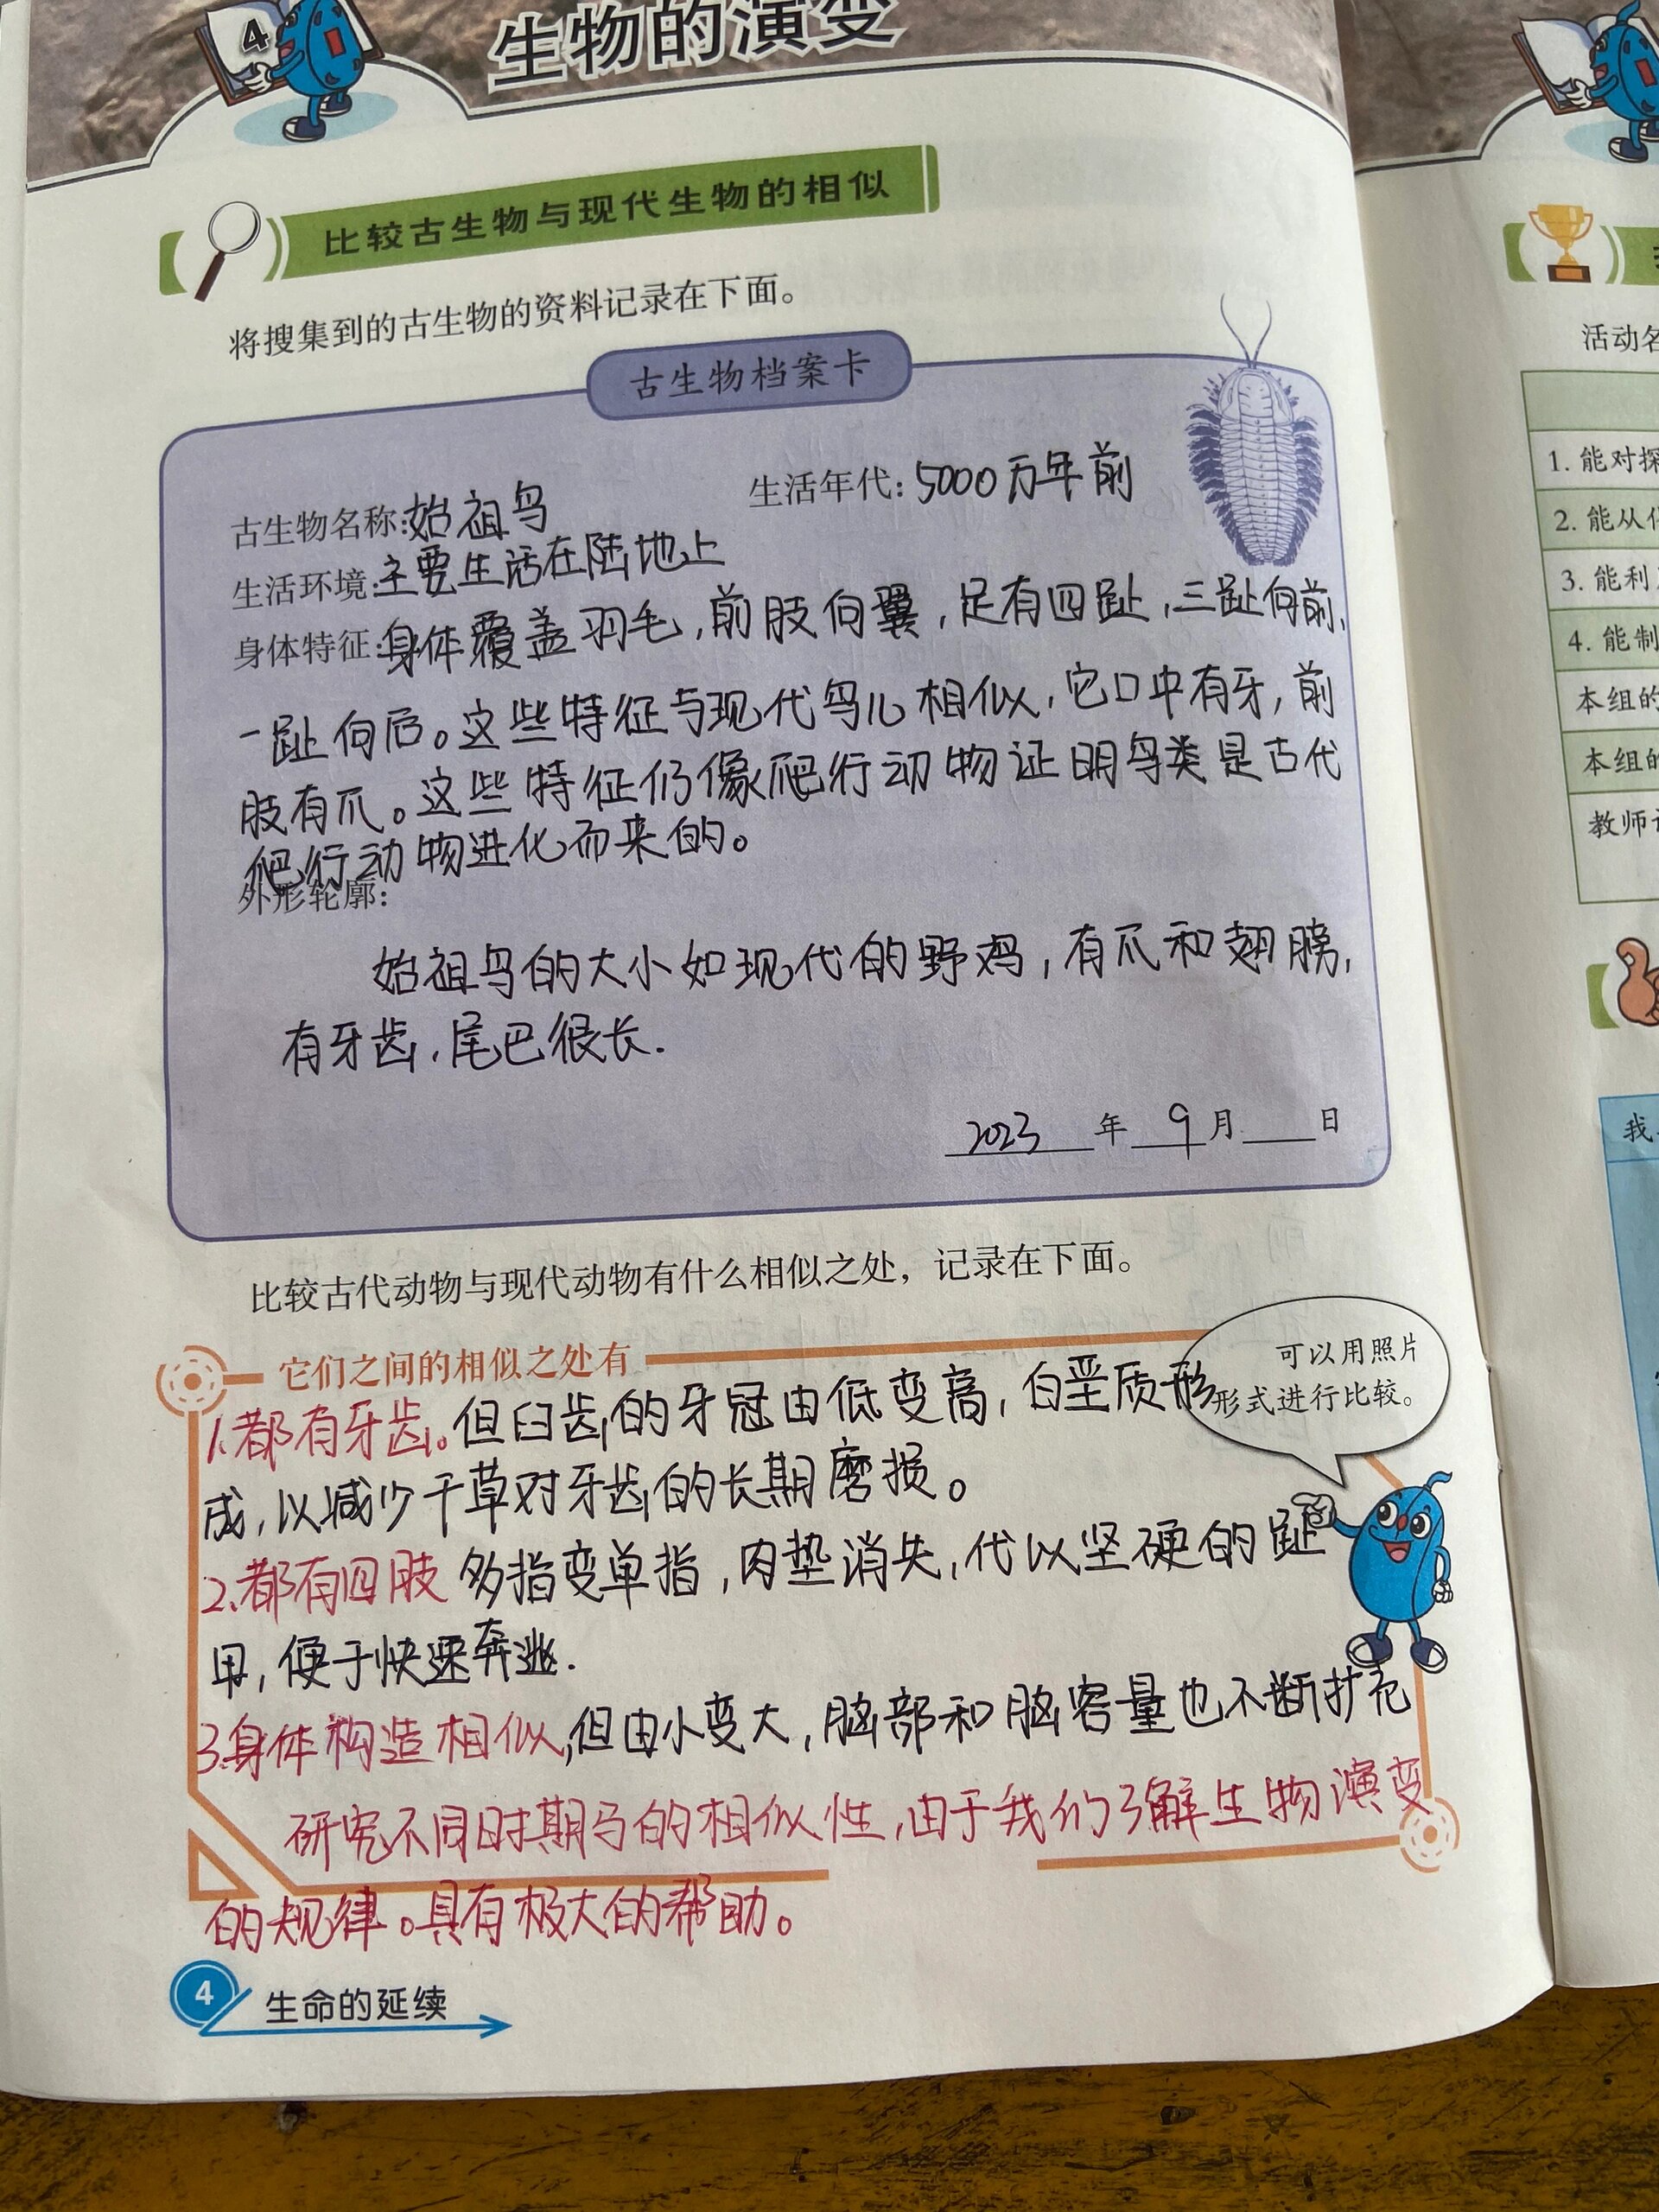 4
生物的演变
比较古生物与现代生物的相似
将搜集到的古生物的资料记录在下面。
古生物档案卡
古生物名称:始祖鸟
生活年代:5000万年前
生活环境:主要生活在陆地上
身体特征:身体覆盖羽毛,前肢向翼,足有四趾,三趾向前、
一趾向后。这些特征与现代鸟儿相似,它口中有牙,前
肢有爪。这些特征仍像爬行动物证明鸟类是古代
爬行动物进化而来的。
外形轮廓:
始祖鸟的大小如现代的野鸡,有爪和翅膀,
有牙齿,尾巴很长.
2023年9月 日
比较古代动物与现代动物有什么相似之处,记录在下面。
它们之间的相似之处有
可以用照片
形式进行比较。
1.都有牙齿。但臼齿的牙冠由低变高,白垩质形
成,以减少干草对牙齿的长期磨损。
2.都有四肢 多指变单指,肉垫消失,代以坚硬的趾
甲,便于快速奔逃.
3.身体构造相似,但由小变大,脑部和脑容量也不断扩充
研究不同时期马的相似性,由于我们了解生物演变
的规律。具有极大的帮助。
4 生命的延续
活动名
1. 能对探
2. 能从化
3. 能利
4. 能制
本组的
本组的
教师评
我